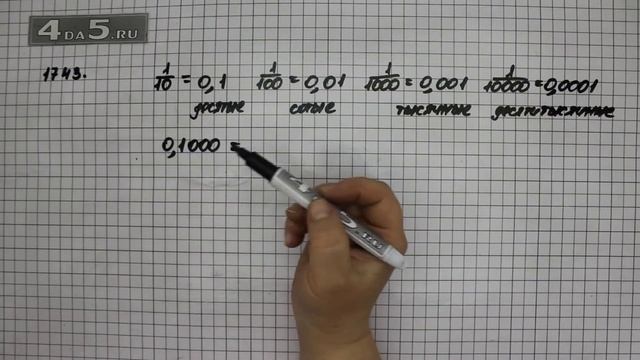 4DA5.RU
1743. 1/10 = 0,1 1/100 = 0,01 1/1000 = 0,001 1/10000 = 0,0001
десятые сотые тысячные десятитысячные
0,1000 =